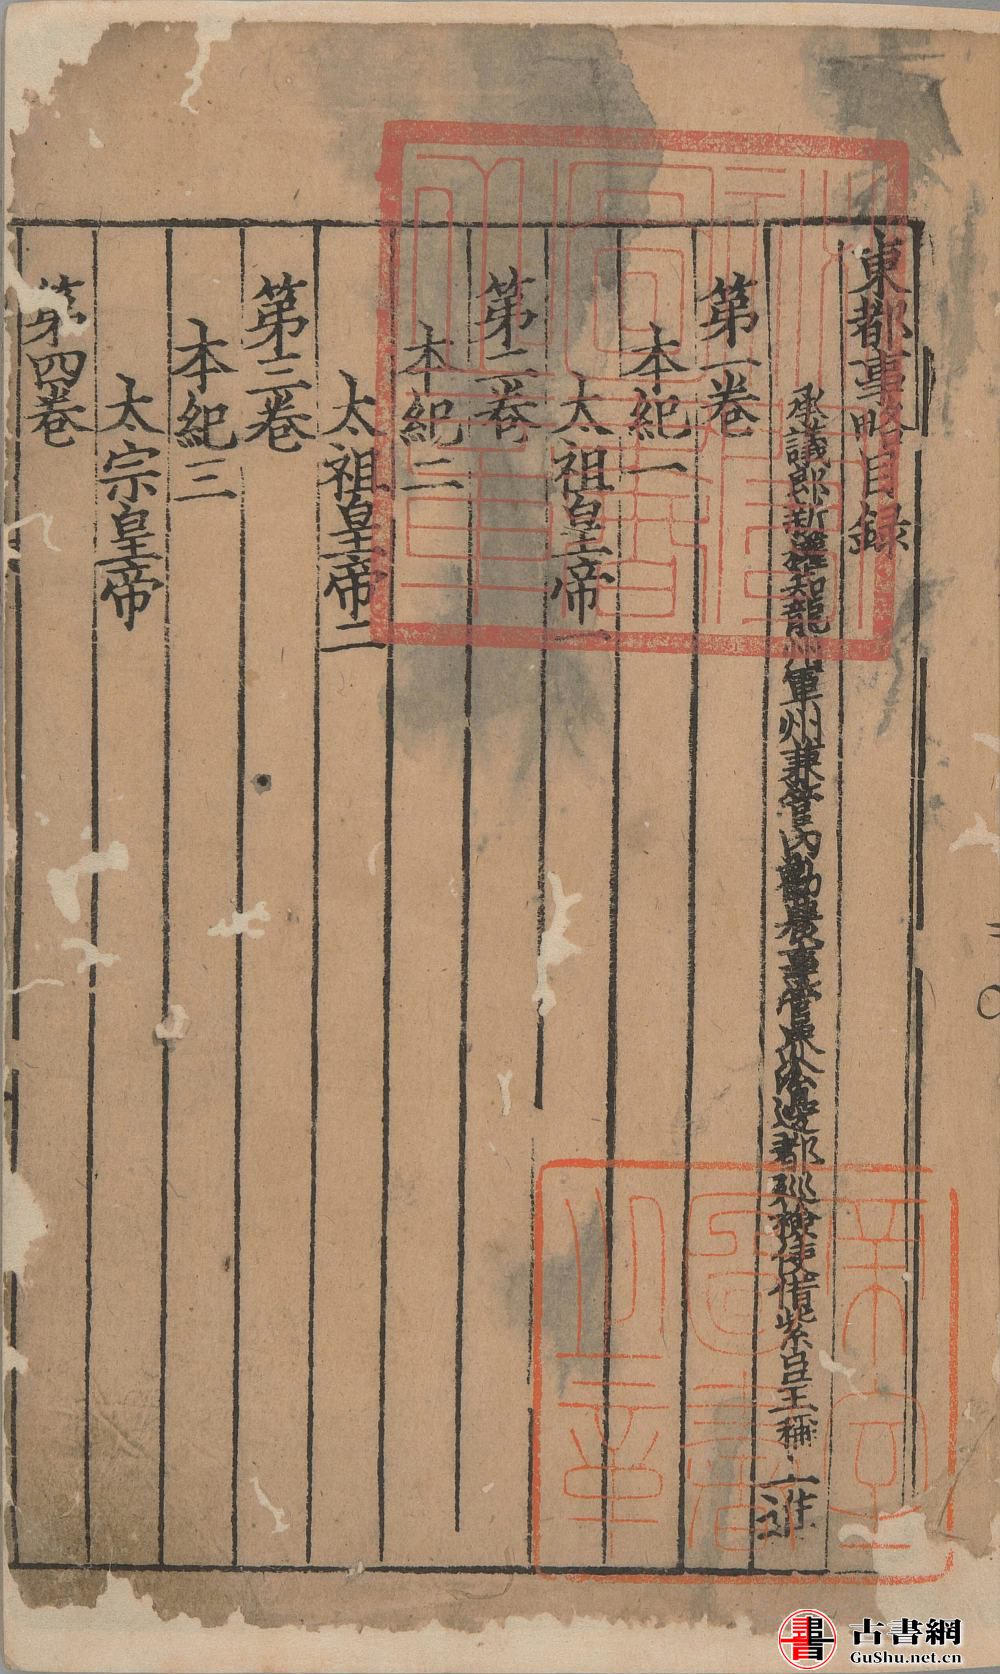 東都事略目録
承議郎新權知龍州軍州兼管內勸農事管界沿邊都巡檢使借紫臣王稱上進
第一卷
本紀一
太祖皇帝一
第二卷
本紀二
太祖皇帝二
第三卷
本紀三
太宗皇帝
第四卷
古書網
GuShu.net.cn